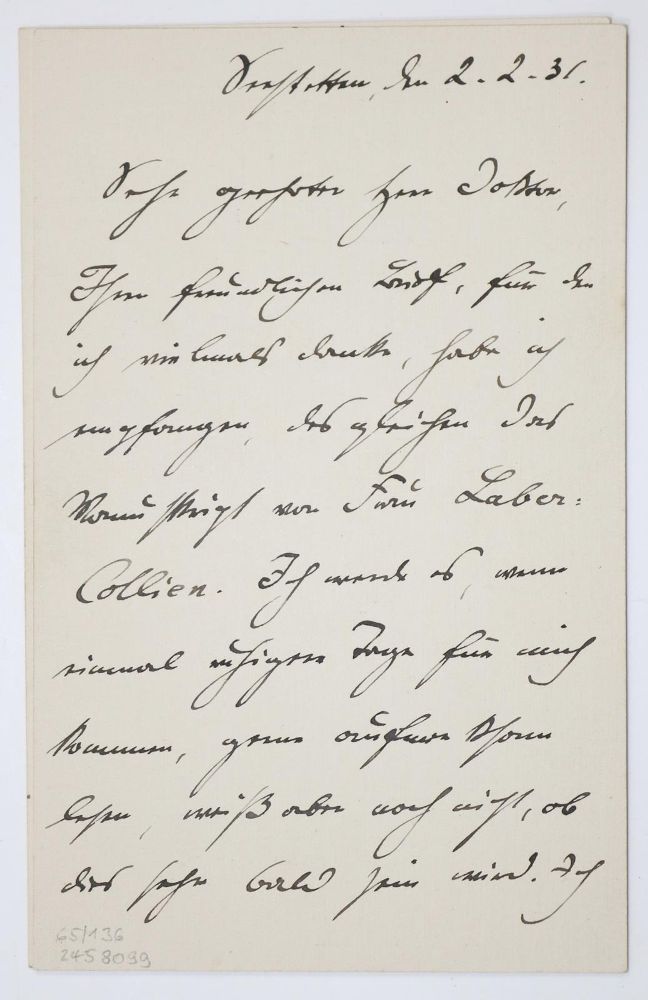 Seestetten, den 2.-2.-31.
Sehr geehrter Herr Doktor,
Ihren freundlichen Brief, für den
ich vielmals danke, habe ich
empfangen, desgleichen das
Manuskript von Frau Laber-
Collien. Ich werde es, wenn
einmal ruhigere Tage für mich
kommen, gerne aufmerksam
lesen, weiß aber noch nicht, ob
dies sehr bald sein wird. Ich
65/136
2458099